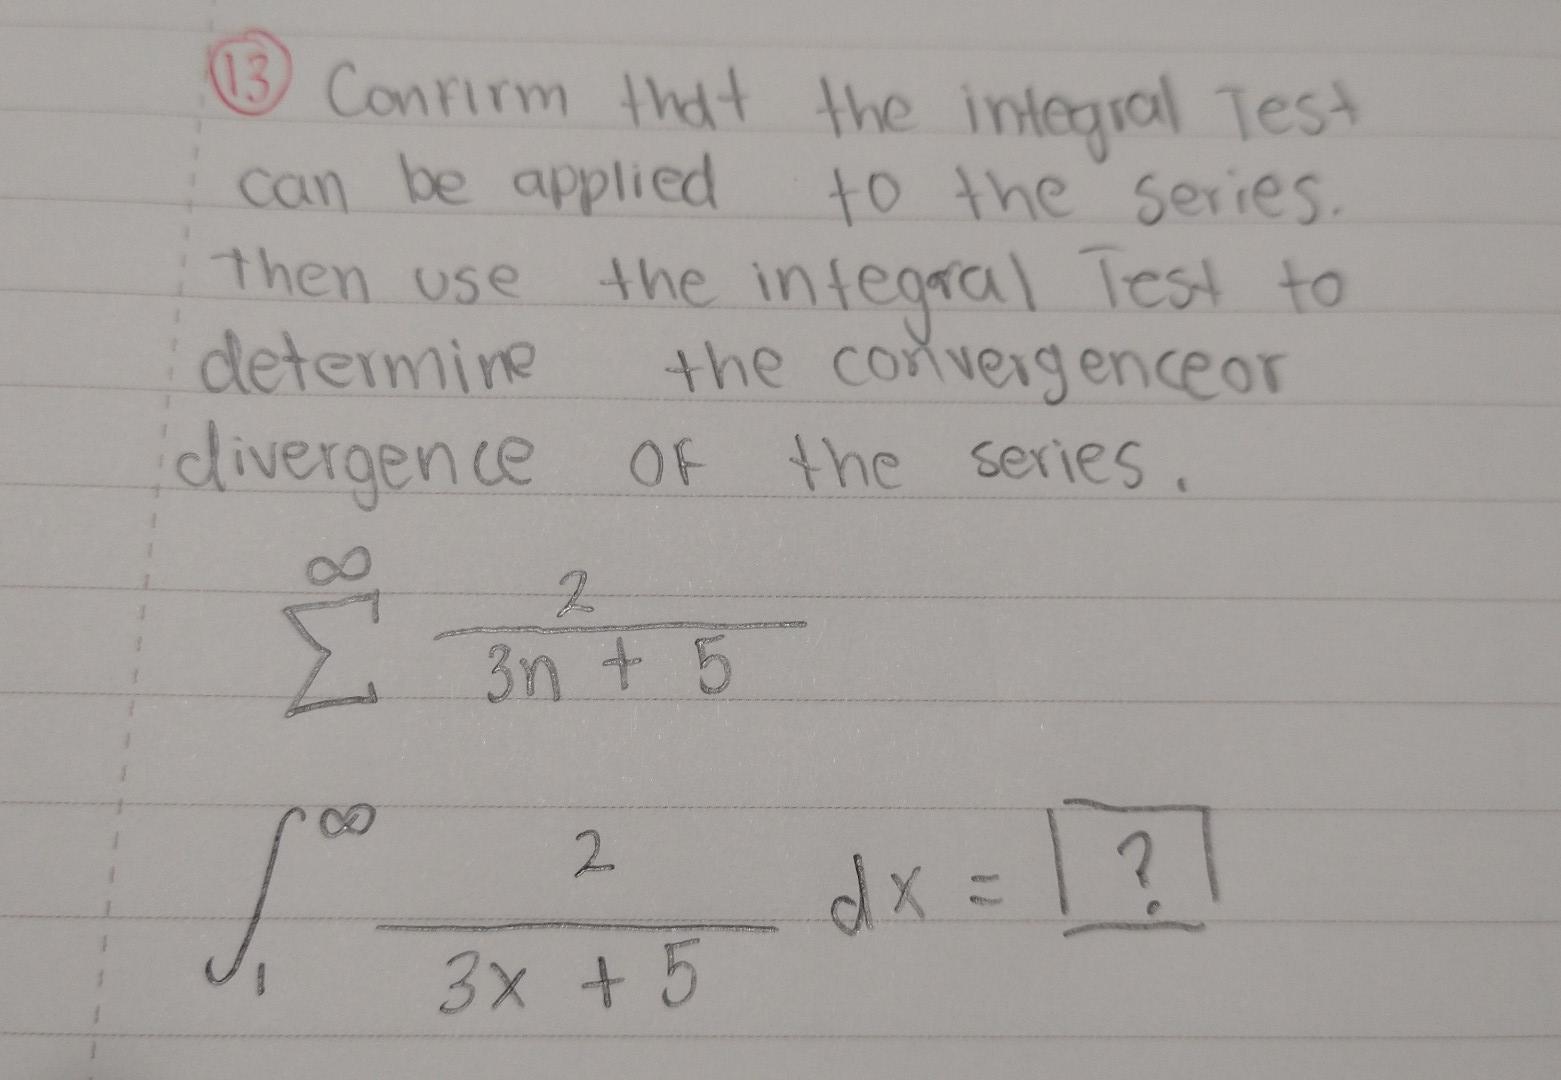 13 Confirm that the integral Test
can be applied to the series.
Then use the integral Test to
determine the convergenceor
divergence of the series.
∞
∑ 2 / 3n + 5
∫₁^∞ 2 / 3x + 5 dx = ?